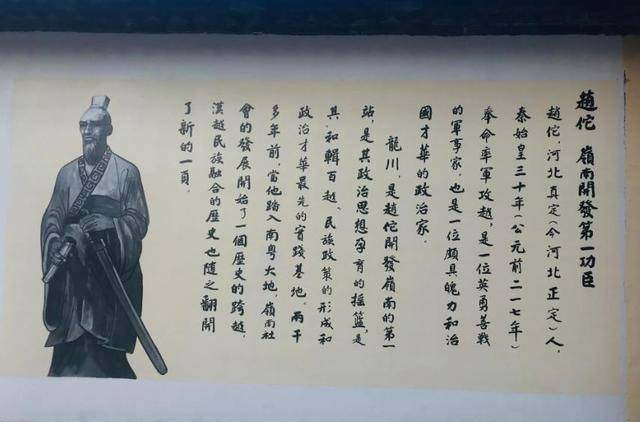 趙佗 嶺南開發第一功臣
趙佗,河北真定(今河北正定)人,
秦始皇三十年(公元前二一七年)
奉命率軍攻越,是一位英勇善戰
的軍事家,也是一位頗具魄力和治
國才華的政治家.
龍川,是趙佗開發嶺南的第一
站,是其政治思想孕育的摇籃,是
其和輯百越、民族政策的形成和
政治才華最先的實踐基地.兩千
多年前,當他踏入南粤大地,嶺南社
會的發展開始了一個歷史的跨越,
漢越民族融合的歷史也隨之翻開
了新的一頁.